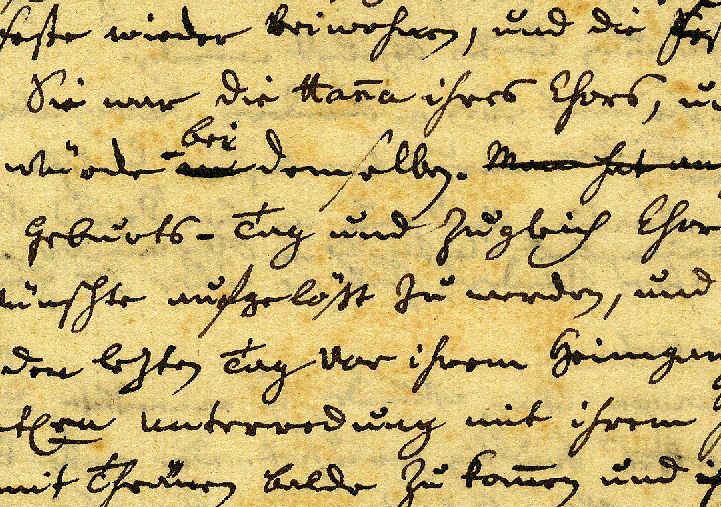 feste wieder beiwohnen, und die Fes
Sie war die Han̅a ihres Chors, u
würde bei demselben. Man hat
Geburts-Tag und zugleich Chor
wünschte aufgelößt zu werden, und
den lezten Tag vor ihrem Heimgan
Unterredung mit ihrem
mit Thränen balde zu kom̅en und